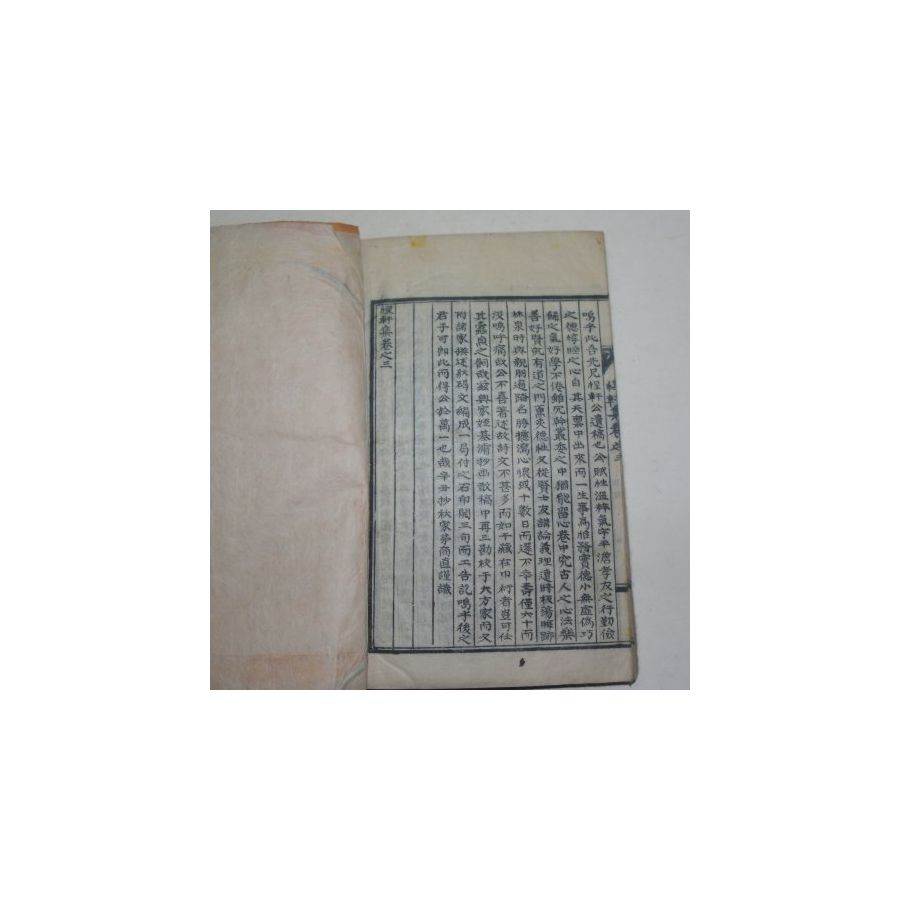 嗚乎此吾先兄惺軒公遺稿也公賦性溫粹氣宇平澹孝友之行勤儉
之德惇睦之心自其天稟中出來而一生事爲惟務實德小無虛僞巧
飾之氣好學不倦雖冗幹叢委之中猶能留心卷中究古人之心法樂
善好賢就有道之門薰炙德性又從賢士友講論義理遺時板蕩晦跡
林泉時與親朋遍踏名勝攄瀉心懷或十數日而還不幸壽僅六十而
沒嗚呼痛哉公不喜著述故詩文不甚多而如干藏在巾衍者豈可任
其蠹魚之飼哉玆與家姪基 抄出散稿中再三勘校于大方家而又
附諸家撰述狀碣文編成一局付之石印閱三旬而工告訖嗚乎後之
君子可卽此而得公於萬一也哉辛丑抄秋家弟商直謹識
惺軒集卷之三
軒集卷之三